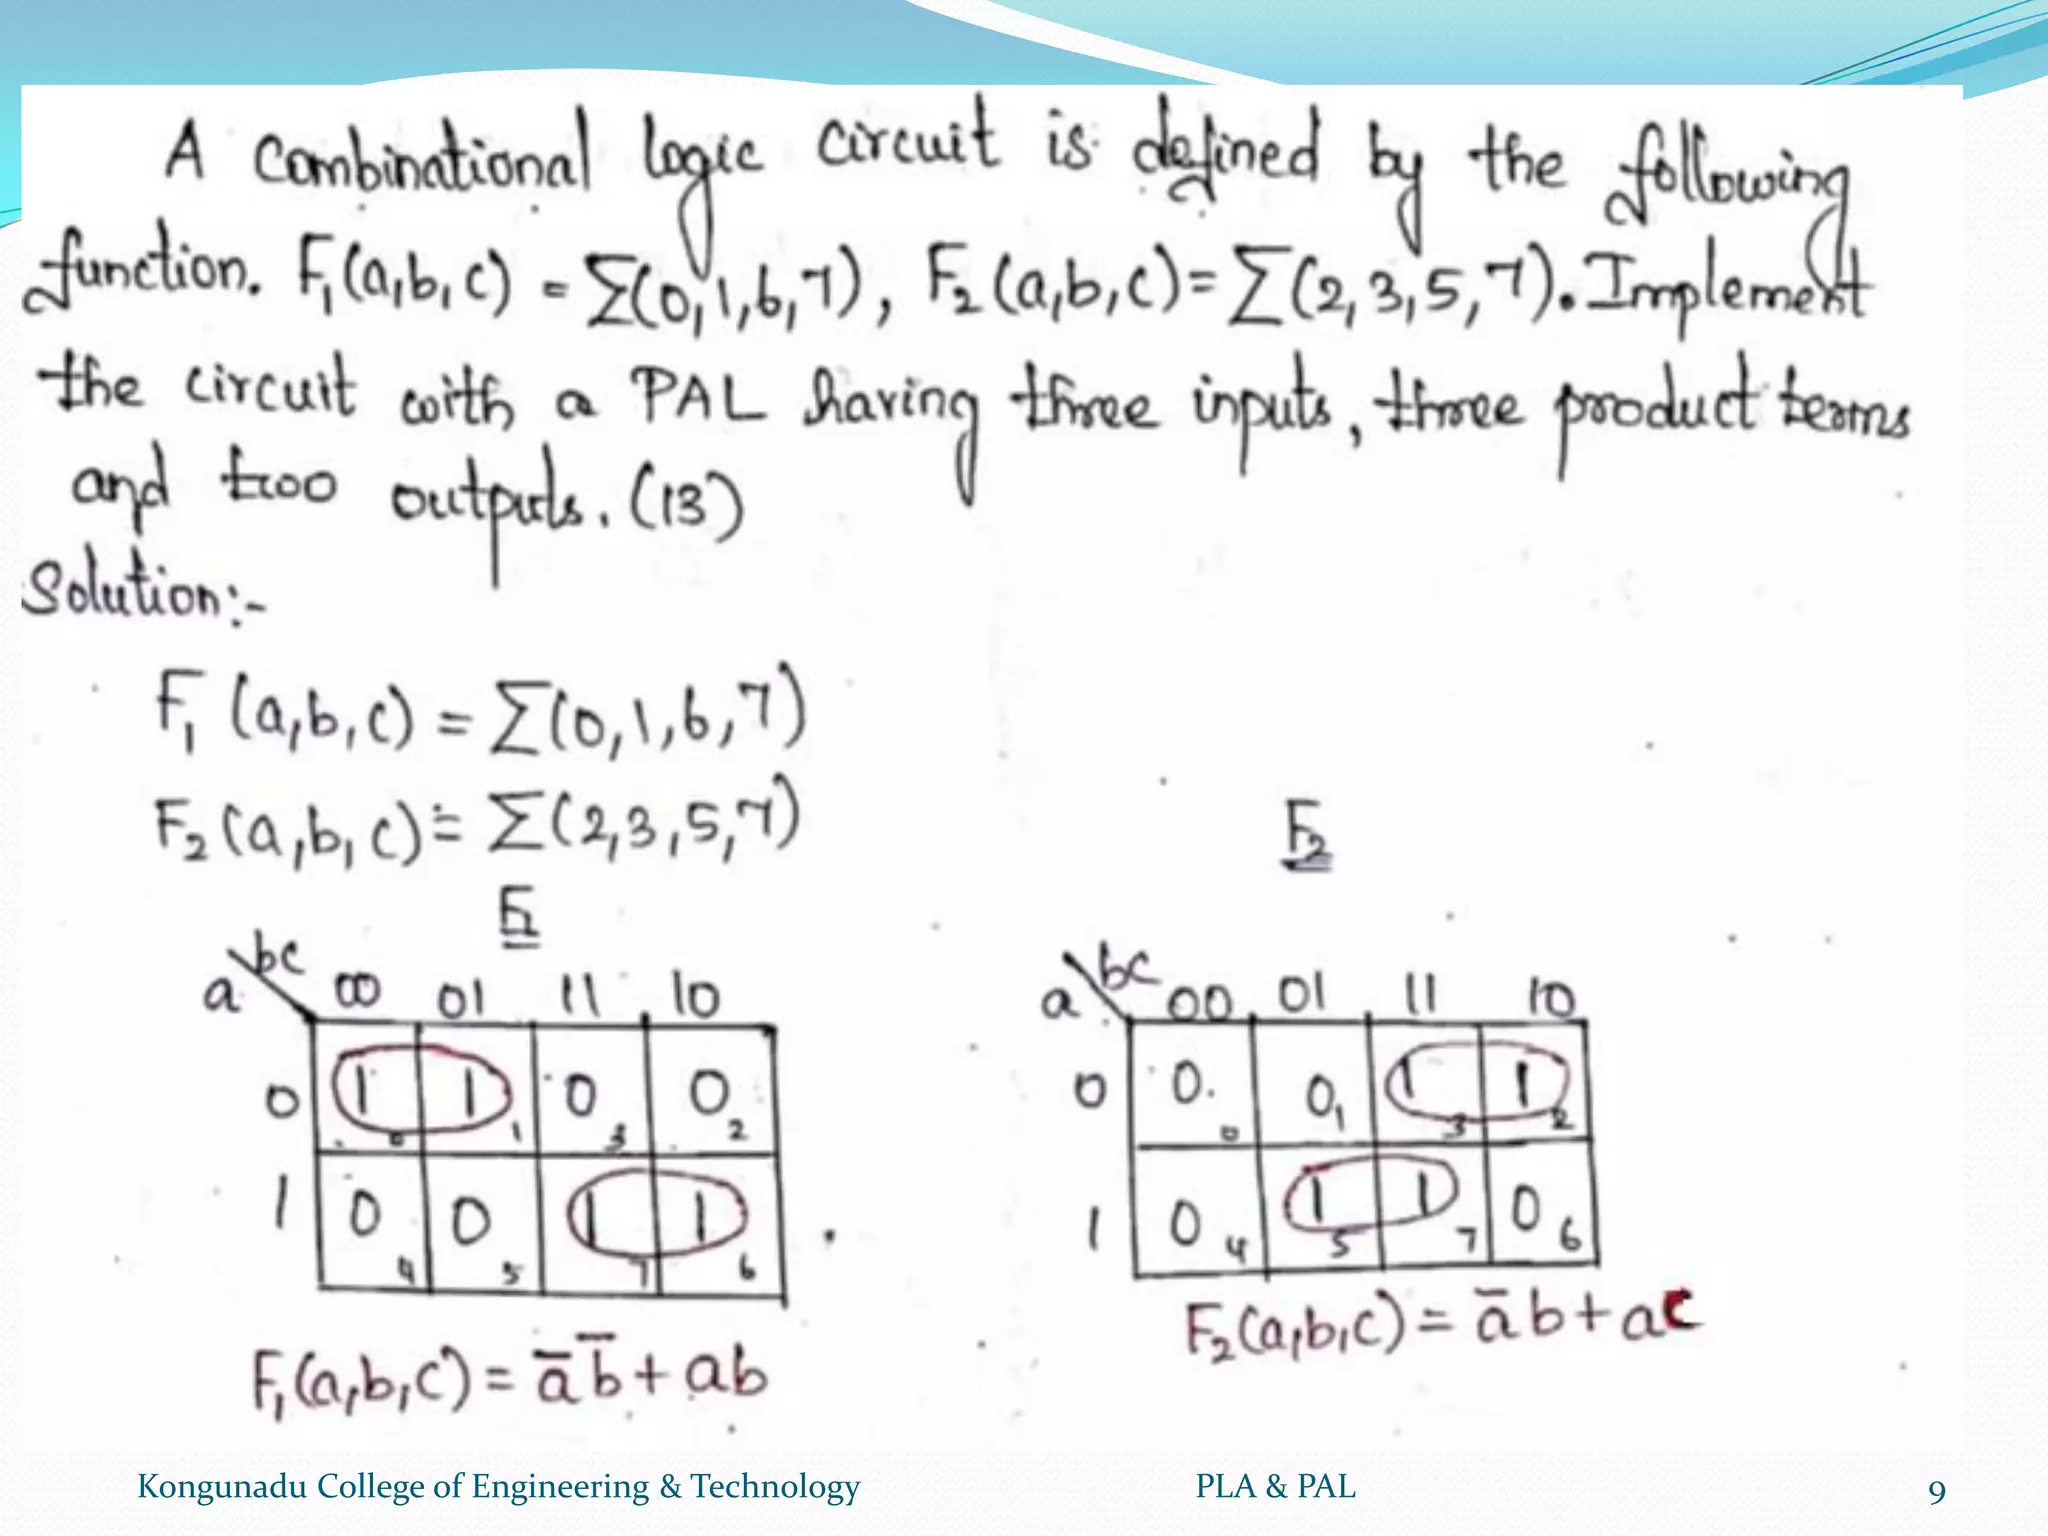 A Combinational logic circuit is defined by the following
function. F₁(a,b,c) = Σ(0,1,6,7), F₂(a,b,c) = Σ(2,3,5,7). Implement
the circuit with a PAL having three inputs, three product terms
and two outputs. (13)
Solution:-
F₁ (a,b,c) = Σ(0,1,6,7)
F₂ (a,b,c) = Σ(2,3,5,7)
F₁
a bc 00 01 11 10
0 1 0 1 1 0 3 0 2
1 0 4 0 5 1 7 1 6
F₁(a,b,c) = a̅ b̅ + ab
F₂
a bc 00 01 11 10
0 0 0 0 1 1 3 1 2
1 0 4 1 5 1 7 0 6
F₂(a,b,c) = a̅ b + ac
Kongunadu College of Engineering & Technology PLA & PAL 9